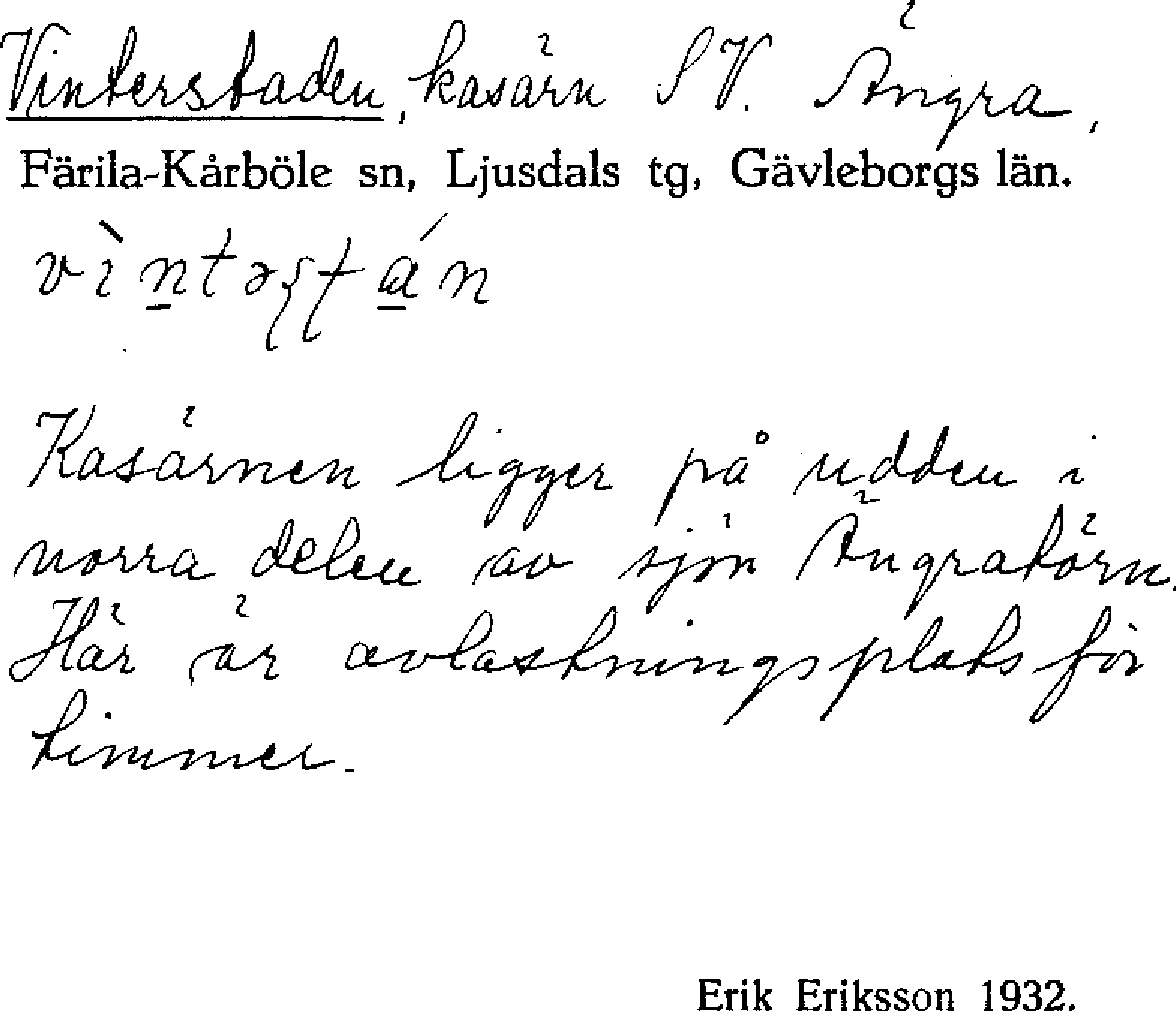 Vinterstaden, kasärn SV. Ängra,
Färila-Kårböle sn, Ljusdals tg, Gävleborgs län.
Kasärnen ligger på udden i
norra delen av sjön Ängratörn.
Här är avlastningsplats för
timmer.
Erik Eriksson 1932.